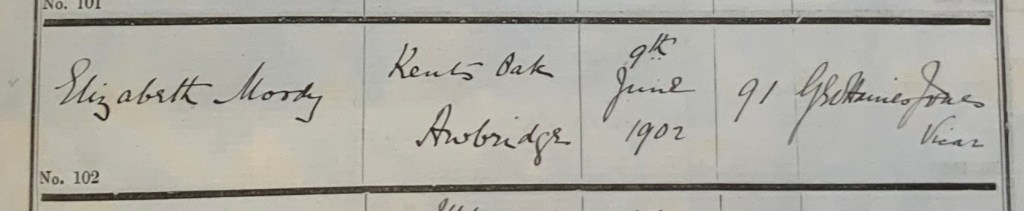 No. 101
Elizabeth Moody
Kents Oak
Awbridge
9th
June
1902
91
Haines Jones
Vicar
No. 102